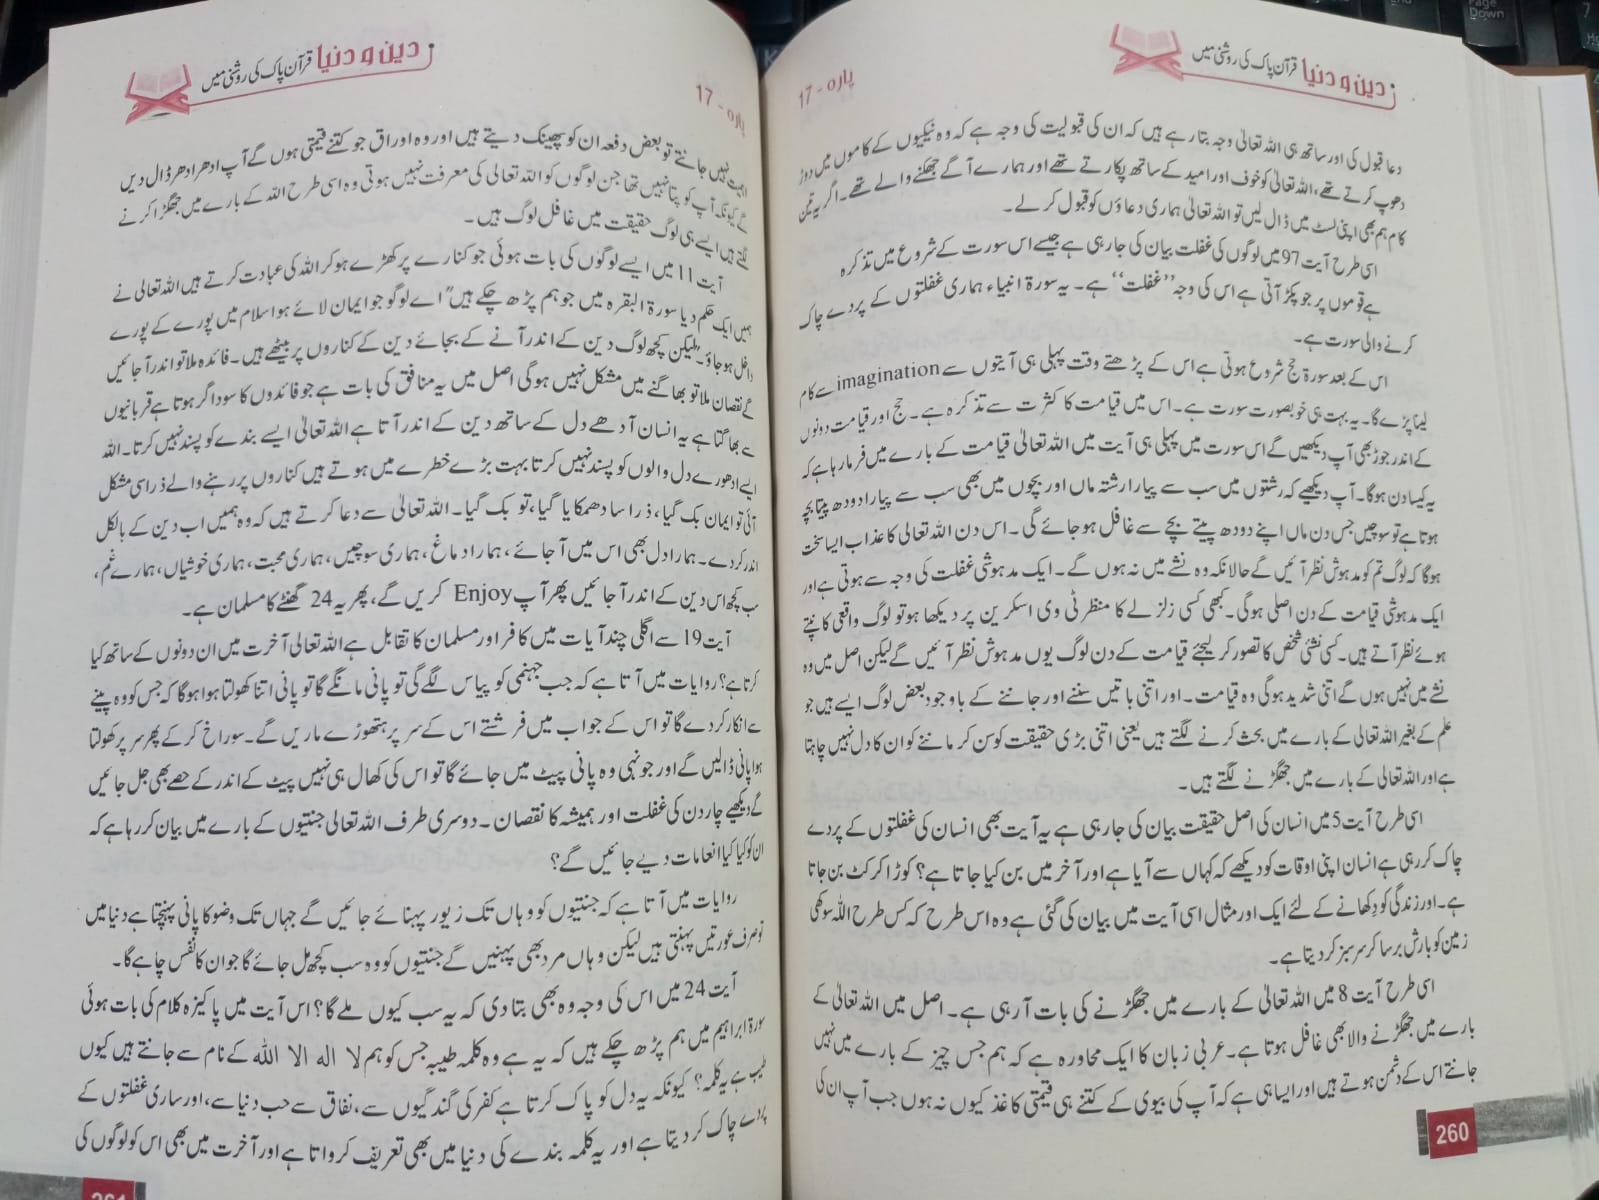 دین و دنیا قرآن پاک کی روشنی میں
پارہ - 17
دعا قبول کی اور ساتھ ہی اللہ تعالیٰ وجہ بتا رہے ہیں کہ ان کی قبولیت کی وجہ ہے کہ وہ نیکیوں کے کاموں میں دوڑ
دھوپ کرتے تھے، اللہ تعالیٰ کو خوف اور امید کے ساتھ پکارتے تھے اور ہمارے آگے جھکنے والے تھے۔ اگر یہ تین
کام ہم بھی اپنی لسٹ میں ڈال لیں تو اللہ تعالیٰ ہماری دعاؤں کو قبول کر لے۔
اسی طرح آیت 97 میں لوگوں کی غفلت بیان کی جا رہی ہے جیسے اس سورت کے شروع میں تذکرہ
ہے قوموں پر جو پکڑ آتی ہے اس کی وجہ ’’غفلت‘‘ ہے۔ یہ سورۃ انبیاء ہماری غفلتوں کے پردے چاک
کرنے والی سورت ہے۔
اس کے بعد سورۃ حج شروع ہوتی ہے اس کے پڑھتے وقت پہلی ہی آیتوں سے imagination سے کام
لینا پڑے گا۔ یہ بہت ہی خوبصورت سورت ہے۔ اس میں قیامت کا کثرت سے تذکرہ ہے۔ حج اور قیامت دونوں
کے اندر جوڑ بھی آپ دیکھیں گے اس سورت میں پہلی ہی آیت میں اللہ تعالیٰ قیامت کے بارے میں فرما رہا ہے کہ
یہ کیسا دن ہوگا۔ آپ دیکھیے کہ رشتوں میں سب سے پیارا رشتہ ماں اور بچوں میں بھی سب سے پیارا دودھ پیتا بچہ
ہوتا ہے تو سوچیں جس دن ماں اپنے دودھ پیتے بچے سے غافل ہو جائے گی۔ اس دن اللہ تعالیٰ کا عذاب ایسا سخت
ہوگا کہ لوگ تم کو مدہوش نظر آئیں گے حالانکہ وہ نشے میں نہ ہوں گے۔ ایک مدہوشی غفلت کی وجہ سے ہوتی ہے اور
ایک مدہوشی قیامت کے دن اصلی ہوگی۔ کبھی کسی زلزلے کا منظر ٹی وی اسکرین پر دیکھا ہو تو لوگ واقعی کانپتے
ہوئے نظر آتے ہیں۔ کسی نشئی شخص کا تصور کر لیجئے قیامت کے دن لوگ یوں مدہوش نظر آئیں گے لیکن اصل میں وہ
نشے میں نہیں ہوں گے اتنی شدید ہوگی وہ قیامت۔ اور اتنی باتیں سننے اور جاننے کے باوجود بعض لوگ ایسے ہیں جو
علم کے بغیر اللہ تعالیٰ کے بارے میں بحث کرنے لگتے ہیں یعنی اتنی بڑی حقیقت کو سن کر ماننے کو ان کا دل نہیں چاہتا
ہے اور اللہ تعالیٰ کے بارے میں جھگڑنے لگتے ہیں۔
اسی طرح آیت 5 میں انسان کی اصل حقیقت بیان کی جا رہی ہے یہ آیت بھی انسان کی غفلتوں کے پردے
چاک کر رہی ہے انسان اپنی اوقات کو دیکھے کہ کہاں سے آیا ہے اور آخر میں بن کیا جاتا ہے؟ کوڑا کرکٹ بن جاتا
ہے۔ اور زندگی کو دکھانے کے لئے ایک اور مثال اسی آیت میں بیان کی گئی ہے وہ اس طرح کہ کس طرح اللہ سوکھی
زمین کو بارش برسا کر سرسبز کر دیتا ہے۔
اسی طرح آیت 8 میں اللہ تعالیٰ کے بارے میں جھگڑنے کی بات آ رہی ہے۔ اصل میں اللہ تعالیٰ کے
بارے میں جھگڑنے والا بھی غافل ہوتا ہے۔ عربی زبان کا ایک محاورہ ہے کہ ہم جس چیز کے بارے میں نہیں
جانتے اس کے دشمن ہوتے ہیں اور ایسا ہی ہے کہ آپ کی بیوی کے کتنے ہی قیمتی کاغذ کیوں نہ ہوں جب آپ ان کی
260
دین و دنیا قرآن پاک کی روشنی میں
پارہ - 17
اہمیت نہیں جانتے تو بعض دفعہ ان کو پھینک دیتے ہیں اور وہ اوراق جو کتنے قیمتی ہوں گے آپ ادھر ادھر ڈال دیں
گے کیونکہ آپ کو پتا نہیں تھا جن لوگوں کو اللہ تعالیٰ کی معرفت نہیں ہوتی وہ اسی طرح اللہ کے بارے میں جھگڑا کرنے
لگتے ہیں ایسے ہی لوگ حقیقت میں غافل لوگ ہیں۔
آیت 11 میں ایسے لوگوں کی بات ہوئی جو کنارے پر کھڑے ہو کر اللہ کی عبادت کرتے ہیں اللہ تعالیٰ نے
ہمیں ایک حکم دیا سورۃ البقرہ میں جو ہم پڑھ چکے ہیں "اے لوگو جو ایمان لائے ہو اسلام میں پورے کے پورے
داخل ہو جاؤ۔" لیکن کچھ لوگ دین کے اندر آنے کے بجائے دین کے کناروں پر بیٹھے ہیں۔ فائدہ ملا تو اندر آ جائیں
گے نقصان ملا تو بھاگنے میں مشکل نہیں ہوگی اصل میں یہ منافق کی بات ہے جو فائدوں کا سوداگر ہوتا ہے قربانیوں
سے بھاگتا ہے یہ انسان آدھے دل کے ساتھ دین کے اندر آتا ہے اللہ تعالیٰ ایسے بندے کو پسند نہیں کرتا۔ اللہ
ایسے ادھورے دل والوں کو پسند نہیں کرتا بہت بڑے خطرے میں ہوتے ہیں کناروں پر رہنے والے ذرا سی مشکل
آئی تو ایمان بک گیا، ذرا سا دھمکایا گیا، تو بک گیا۔ اللہ تعالیٰ سے دعا کرتے ہیں کہ وہ ہمیں اب دین کے بالکل
اندر کر دے۔ ہمارا دل بھی اس میں آ جائے، ہمارا دماغ، ہماری سوچیں، ہماری محبت، ہماری خوشیاں، ہمارے غم،
سب کچھ اس دین کے اندر آ جائیں پھر آپ Enjoy کریں گے، پھر یہ 24 گھنٹے کا مسلمان ہے۔
آیت 19 سے اگلی چند آیات میں کافر اور مسلمان کا تقابل ہے اللہ تعالیٰ آخرت میں ان دونوں کے ساتھ کیا
کرتا ہے؟ روایات میں آتا ہے کہ جب جہنمی کو پیاس لگے گی تو پانی مانگے گا تو پانی اتنا کھولتا ہوا ہوگا کہ جس کو وہ پینے
سے انکار کر دے گا تو اس کے جواب میں فرشتے اس کے سر پر ہتھوڑے ماریں گے۔ سوراخ کر کے پھر سر پر کھولتا
ہوا پانی ڈالیں گے اور جونہی وہ پانی پیٹ میں جائے گا تو اس کی کھال ہی نہیں پیٹ کے اندر کے حصے بھی جل جائیں
گے دیکھیے چار دن کی غفلت اور ہمیشہ کا نقصان۔ دوسری طرف اللہ تعالیٰ جنتیوں کے بارے میں بیان کر رہا ہے کہ
ان کو کیا کیا انعامات دیے جائیں گے؟
روایات میں آتا ہے کہ جنتیوں کو وہاں تک زیور پہنائے جائیں گے جہاں تک وضو کا پانی پہنچتا ہے دنیا میں
تو صرف عورتیں پہنتی ہیں لیکن وہاں مرد بھی پہنیں گے جنتیوں کو وہ سب کچھ مل جائے گا جو ان کا نفس چاہے گا۔
آیت 24 میں اس کی وجہ وہ بھی بتا دی کہ یہ سب کیوں ملے گا؟ اس آیت میں پاکیزہ کلام کی بات ہوئی
سورۃ ابراہیم میں ہم پڑھ چکے ہیں کہ یہ ہے وہ کلمہ طیبہ جس کو ہم لا الہ الا اللہ کے نام سے جانتے ہیں کیوں
طیب ہے یہ کلمہ؟ کیونکہ یہ دل کو پاک کرتا ہے کفر کی گندگیوں سے، نفاق سے حب دنیا سے، اور ساری غفلتوں کے
پردے چاک کر دیتا ہے اور یہ کلمہ بندے کی دنیا میں بھی تعریف کرواتا ہے اور آخرت میں بھی اس کو لوگوں کی
261
Page Down
K
7